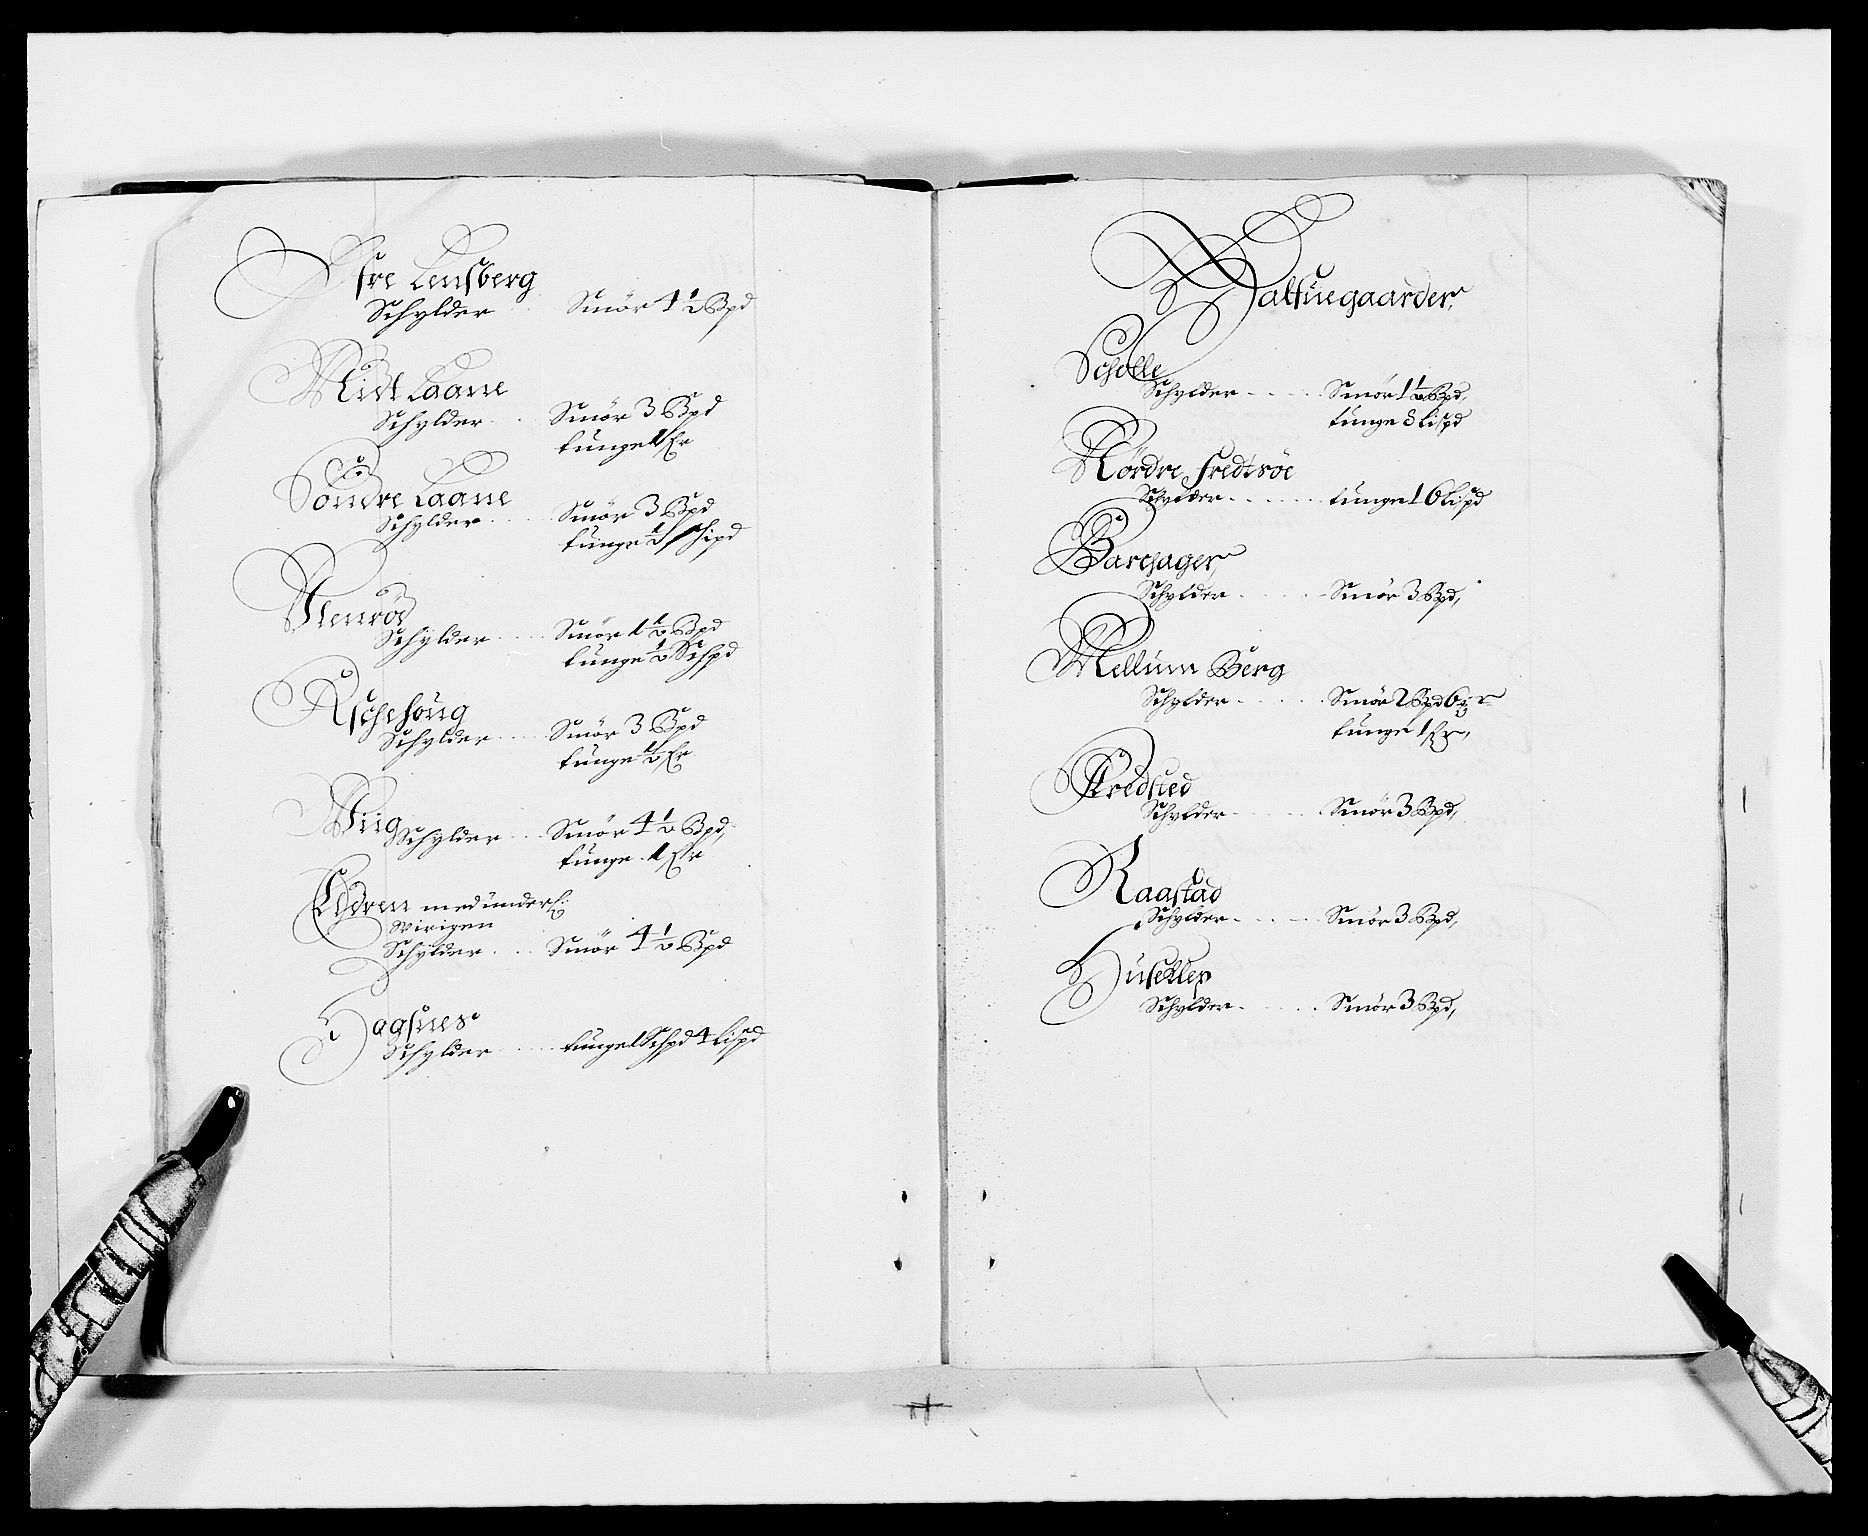 Øfre Lensberg
Schylder Smör 4 1/2 Bpd
Midt Laane
Schylder Smör 3 Bpd
tunge 1 fr
Söndre Laane
Schylder Smör 3 Bpd
tunge 1/2 schipd
Schylder Smör 1 1/2 Bpd
tunge 1/2 Schpd
Aschehoug
Schylder Smör 3 Bpd
tunge 1/2 fr
Wiig
Schylder Smör 4 1/2 Bpd,
tunge 1 fr
med underl:
Wirigen
Schylder Smör 4 1/2 Bpd
Hagsnes
Schylder tunge 1 Schpd 4 Lispd
Halfuegaarder,
Schelle
Schylder Smör 1 1/2 Bpd,
tunge 8 Lispd
Nördre Fredsröe
Schylder tunge 16 Lispd
Barchager,
Schylder Smör 3 Bpd,
Mellum Berg
Schylder Smör 2 Bpd 6
tunge 1 fr,
Fredsted
Schylder Smör 3 Bpd,
Raastad
Schylder Smör 3 Bpd,
Huseklep
Schylder Smör 3 Bpd,